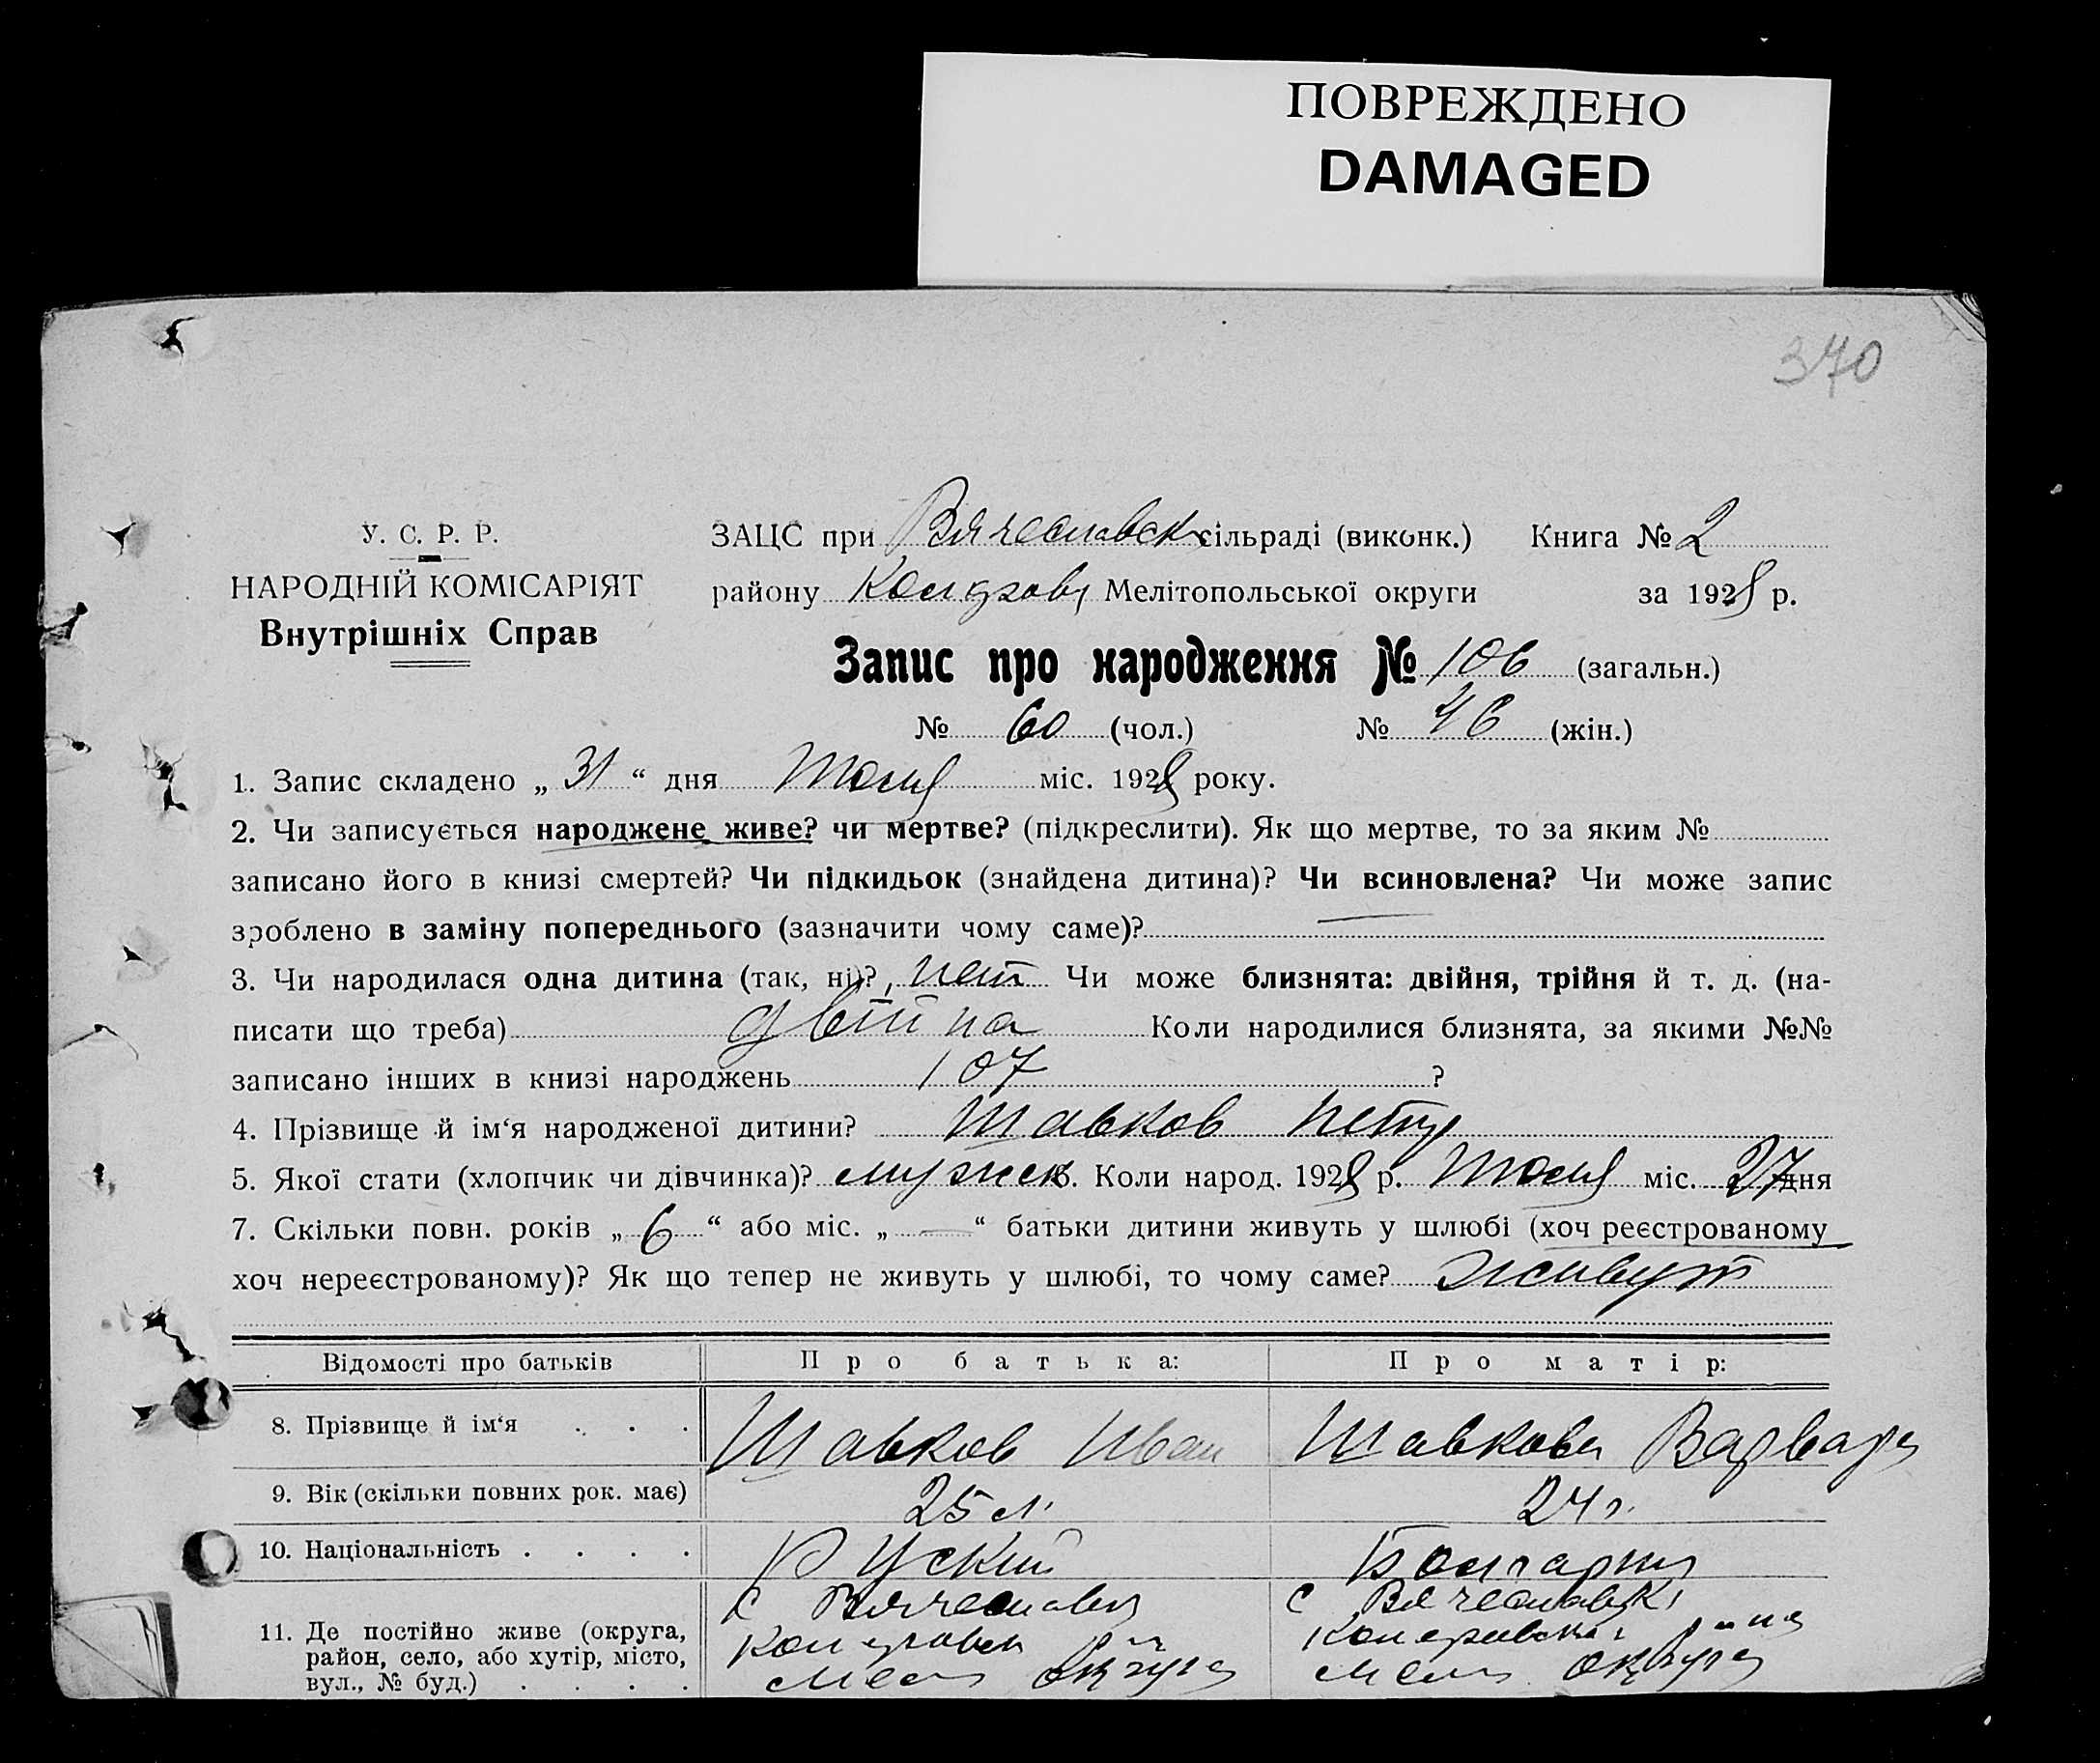 ПОВРЕЖДЕНО
DAMAGED
370
У. С. Р. Р.
НАРОДНІЙ КОМІСАРІЯТ
Внутрішніх Справ
ЗАЦС при Вячеславск сільраді (виконк.) Книга № 2
району Мелітопольської округи за 1928 р.
Запис про народження № 106 (загальн.)
№ 60 (чол.) № 46 (жін.)
1. Запис складено „ 31 “ дня міс. 1928 року.
2. Чи записується народжене живе? чи мертве? (підкреслити). Як що мертве, то за яким №
записано його в книзі смертей? Чи підкидьок (знайдена дитина)? Чи всиновлена? Чи може запис
зроблено в заміну попереднього (зазначити чому саме)?
3. Чи народилася одна дитина (так, ні)? нет Чи може близнята: двійня, трійня й т. д. (на-
писати що треба) Коли народилися близнята, за якими №№
записано інших в книзі народжень 107 ?
4. Прізвище й ім‘я народженої дитини? Шавков Петр
5. Якої стати (хлопчик чи дівчинка)? мужск. Коли народ. 1928 р. міс. 27 дня
7. Скільки повн. років „ 6 “ або міс. „ — “ батьки дитини живуть у шлюбі (хоч реєстрованому
хоч нереєстрованому)? Як що тепер не живуть у шлюбі, то чому саме? живут
Відомості про батьків Про батька: Про матір:
8. Прізвище й ім‘я Шавков Иван Шавкова Варвара
9. Вік (скільки повних рок. має) 25 л. 24 г.
10. Національність Руский Болгарка
11. Де постійно живе (округа,
район, село, або хутір, місто,
вул., № буд.)
с Вячеславка
Мел округа
с Вячеславка
района
Мел округа